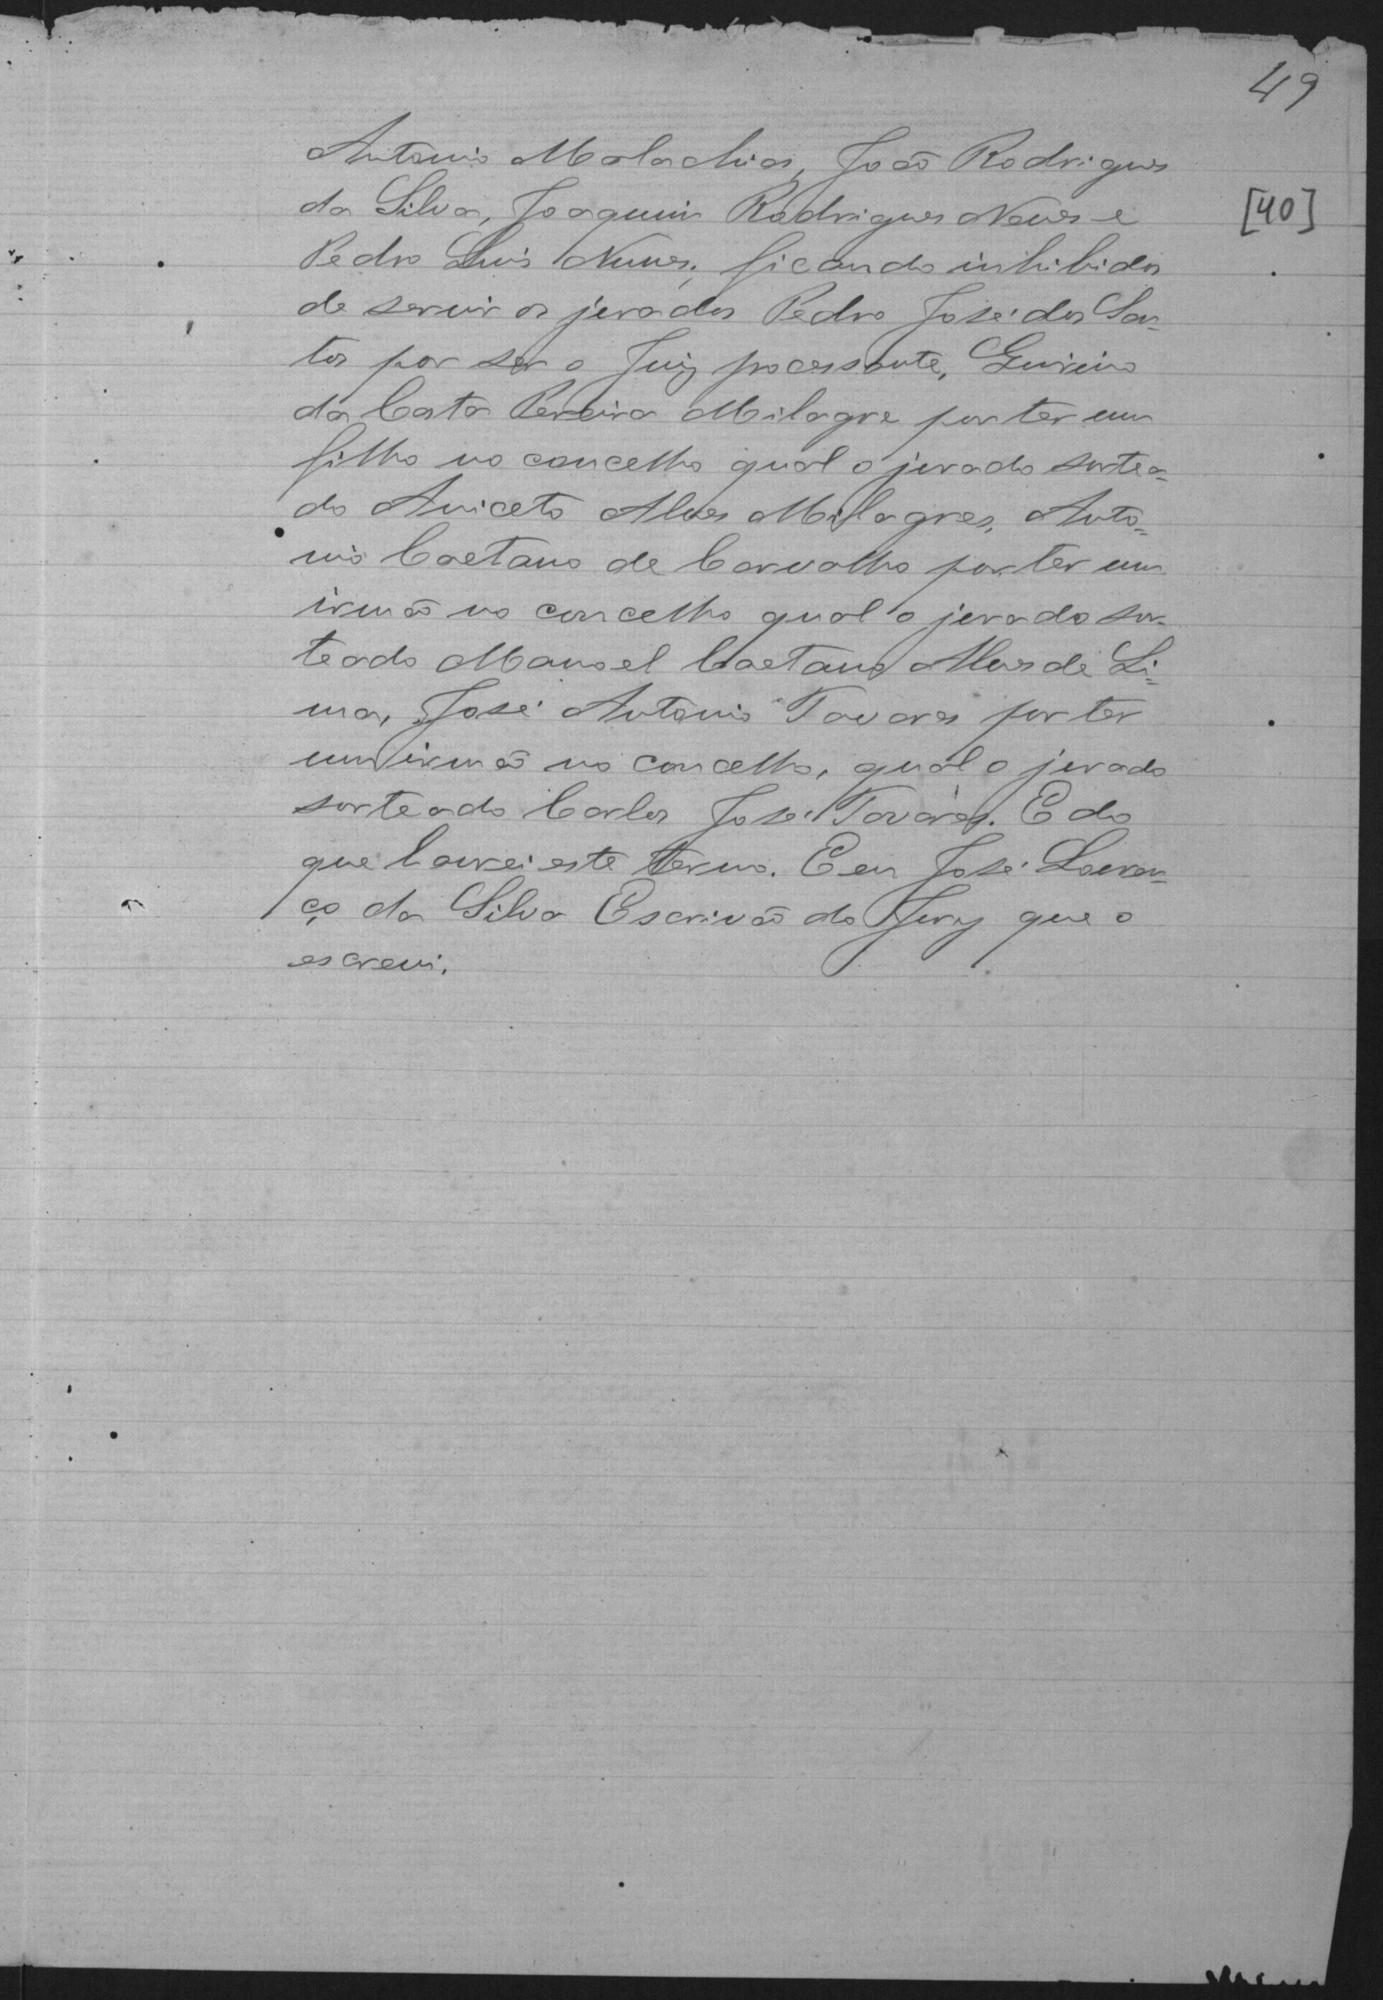 49
Antonio Malachias, João Rodrigues
da Silva, Joaquim Rodrigues Neves e
[40]
Pedro Luis Nunes, ficando inhibidos
de servir os jurados Pedro José dos San-
tos por ser o Juiz processante,
da Costa Pereira Milagre por ter um
filho no concelho qual o jurado sortea-
do Aniceto Alves Milagres, Anto-
nio Caetano de Carvalho por ter um
irmão no concelho qual o jurado sor-
teado Manoel Caetano Alves de Li-
ma, José Antonio Tavares por ter
um irmão no concelho, qual o jurado
sorteado Carlos José Tavares. E do
que lavrei este termo. E eu José Louren-
ço da Silva Escrivão do Jury que o
escrevi.